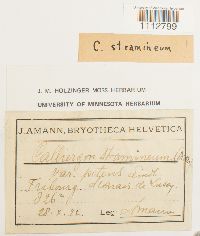 1112799
C. stramineum
J. M. HOLZINGER MOSS HERBARIUM
UNIVERSITY OF MINNESOTA HERBARIUM
J. AMANN, BRYOTHECA HELVETICA
Calliergon stramineum
var.
Fribourg. Marais de
826
28. X. Leg. Amann